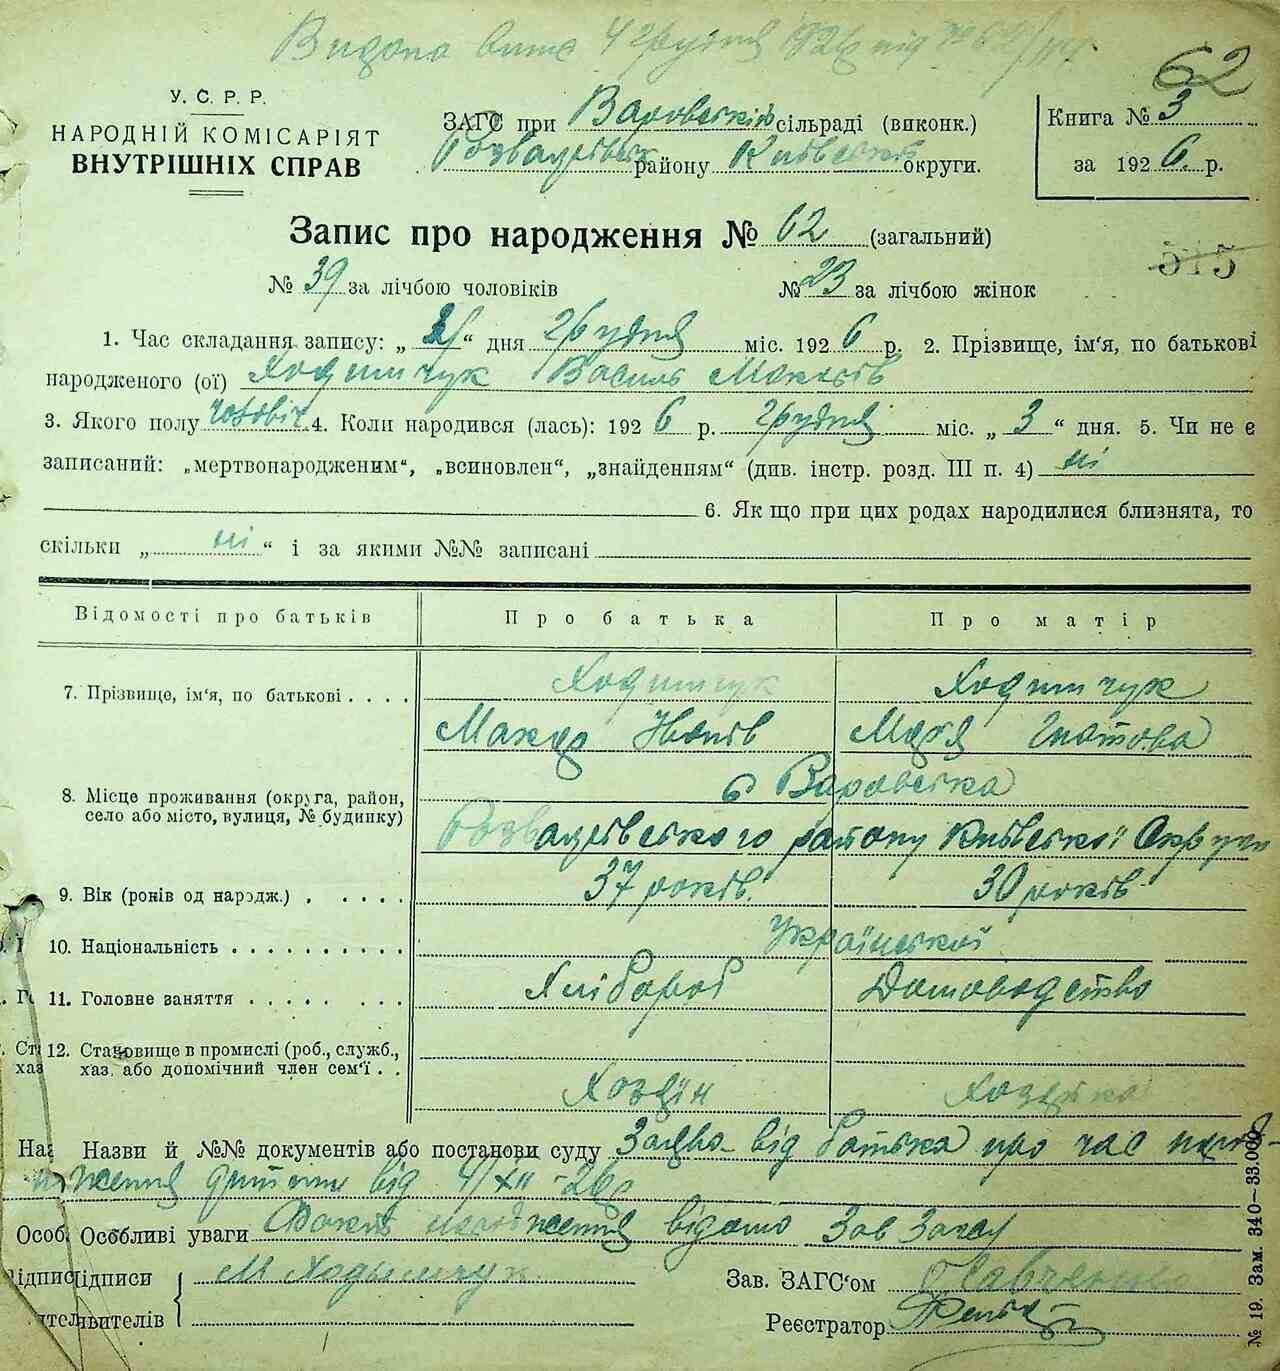 Видана 4 грудня 1926 під №
62
У. С. Р. Р.
НАРОДНІЙ КОМІСАРІЯТ
ВНУТРІШНІХ СПРАВ
ЗАГС при Варовській сільраді (виконк.)
району Київської округи.
Книга № 3
за 1926 р.
Запис про народження № 62 (загальний)
515
№ 39 за лічбою чоловіків № 23 за лічбою жінок
1. Час складання запису: „ 4 “ дня грудня міс. 1926 р. 2. Прізвище, ім'я, по батькові
народженого (ої) Ходимчук Василь Макарів
3. Якого полу чоловіч. 4. Коли народився (лась): 1926 р. грудня міс. „ 3 “ дня. 5. Чи не є
записаний: „мертвонародженим“, „всиновлен“, „знайденням“ (див. інстр. розд. III п. 4) ні
6. Як що при цих родах народилися близнята, то
скільки „ ні “ і за якими №№ записані
Відомості про батьків Про батька Про матір
7. Прізвище, ім'я, по батькові . . . . Ходимчук Ходимчук
Макар Марія Гнатова
8. Місце проживання (округа, район, с Варовська
село або місто, вулиця, № будинку) району Київської Округи
9. Вік (років од народж.) . . . . . 37 років. 30 років
10. Національність . . . . . . . . . . Української
11. Головне заняття . . . . . . . . Хлібороб Домоводство
12. Становище в промислі (роб., служб.,
хаз. або допомічний член сем'ї . . Хозяїн Хозяйка
Назви й №№ документів або постанови суду Заява від батька про час народ-
ження дитини від 4/XII-26р
Особливі уваги Факт народження відомо Зав Загсу
Підписи М Ходымчук Зав. ЗАГС'ом Савченко
Реєстратор
№ 19. Зам. 340—33.000